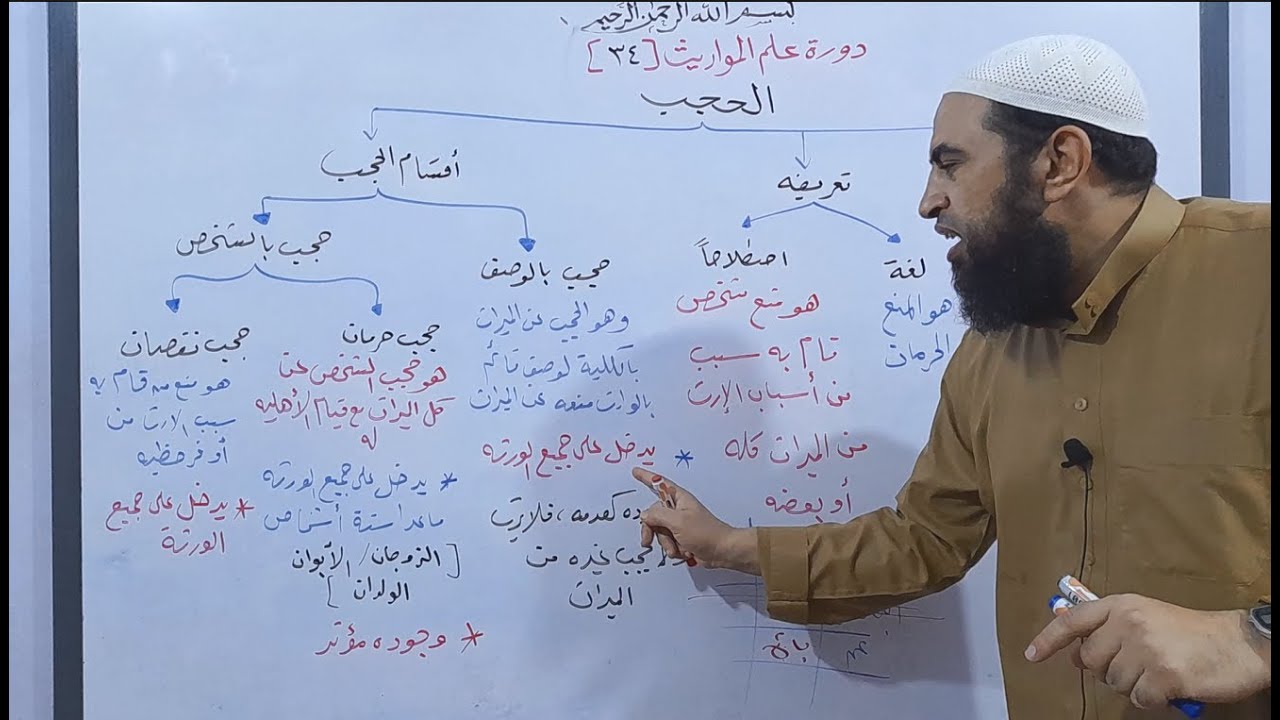 بسم الله الرحمن الرحيم
دورة علم المواريث [٣٤]
الحجب
تعريفه
لغة
هو المنع
الحرمان
اصطلاحاً
هو منع شخص
قام به سبب
من أسباب الإرث
من الميراث كله
أو بعضه
باقي
أقسام الحجب
حجب بالوصف
وهو الحجب عن الميراث
بالكلية لوصف قائم
بالوارث منعه عن الميراث
* يدخل على جميع الورثة
كعدمه، فلا يرث
يحجب غيره من
الميراث
حجب بالشخص
حجب حرمان
هو حجب الشخص عن
كل الميراث مع قيام الأهلية
له
* يدخل على جميع الورثة
ماعدا ستة أشخاص
[الزوجان/الأبوان
الولدان]
* وجوده مؤثر
حجب نقصان
هو منع من قام به
سبب الارث من
أوفر حظيه
* يدخل على جميع
الورثة